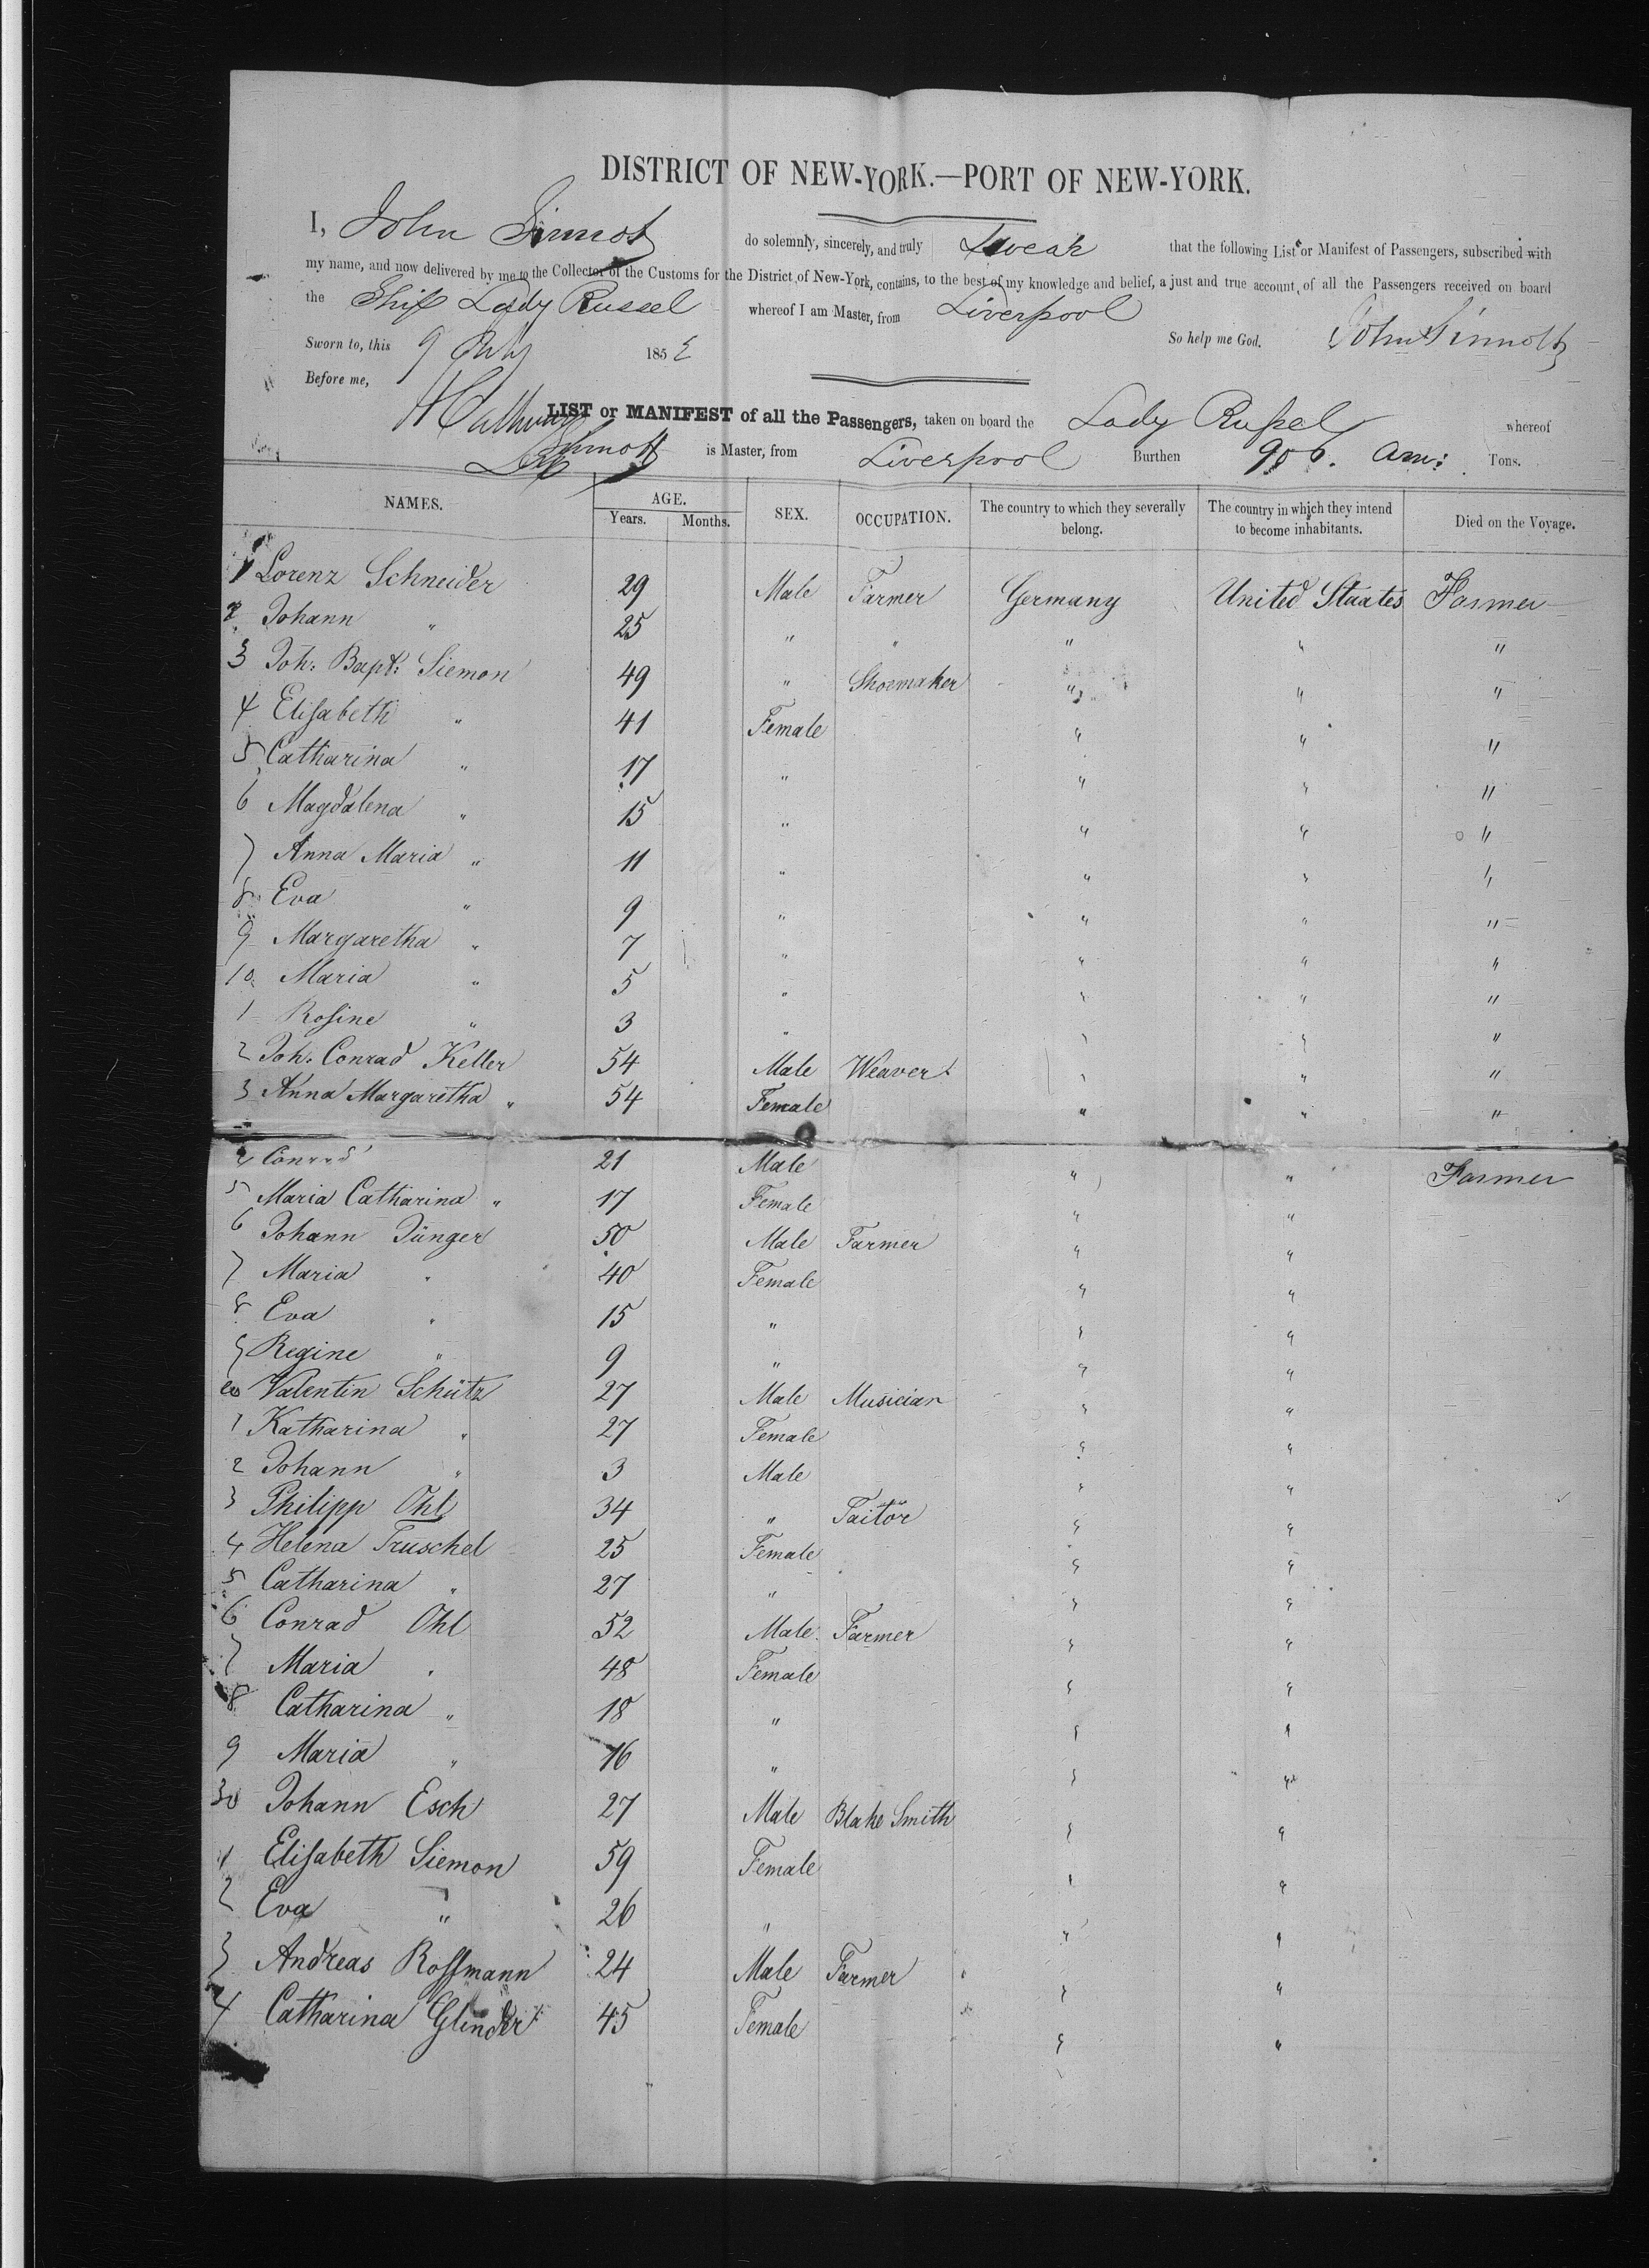 DISTRICT OF NEW-YORK.—PORT OF NEW-YORK.
I, John Sinnott do solemnly, sincerely, and truly Swear that the following List or Manifest of Passengers, subscribed with
my name, and now delivered by me to the Collector of the Customs for the District of New-York, contains, to the best of my knowledge and belief, a just and true account of all the Passengers received on board
the Ship Lady Russel whereof I am Master, from Liverpool
Sworn to, this 9 July 185 So help me God. John Sinnott
Before me,
LIST or MANIFEST of all the Passengers, taken on board the Lady Russel whereof
Sinnott is Master, from Liverpool Burthen 906. Am: Tons.
NAMES. AGE. SEX. OCCUPATION. The country to which they severally belong. The country in which they intend to become inhabitants. Died on the Voyage.
Years. Months.
1 Lorenz Schneider 29 Male Farmer Germany United Staates Farmer
2 Johann " 25 " " " " "
3 Joh: Bapt: Siemon 49 " Shoemaker " " "
4 Elisabeth " 41 Female " " "
5 Catharina " 17 " " " "
6 Magdalena " 15 " " " "
7 Anna Maria " 11 " " " "
8 Eva " 9 " " " "
9 Margaretha " 7 " " " "
10 Maria " 5 " " " "
1 Rosine " 3 " " " "
2 Joh. Conrad Keller 54 Male Weaver " " "
3 Anna Margaretha " 54 Female " " "
4 Conrad 21 Male " " Farmer
5 Maria Catharina " 17 Female " "
6 Johann Jünger 50 Male Farmer " "
7 Maria " 40 Female " "
8 Eva " 15 " " "
9 Regine " 9 " " "
20 Valentin Schütz 27 Male Musician " "
1 Katharina " 27 Female " "
2 Johann " 3 Male " "
3 Philipp Ohl 34 " Tailor " "
4 Helena Truschel 25 Female " "
5 Catharina " 27 " " "
6 Conrad Ohl 52 Male Farmer " "
7 Maria " 48 Female " "
8 Catharina " 18 " " "
9 Maria " 16 " " "
30 Johann Esch 27 Male Blake Smith " "
1 Elisabeth Siemon 59 Female " "
2 Eva " 26 " " "
3 Andreas Roffmann 24 Male Farmer " "
4 Catharina Glinder 45 Female " "